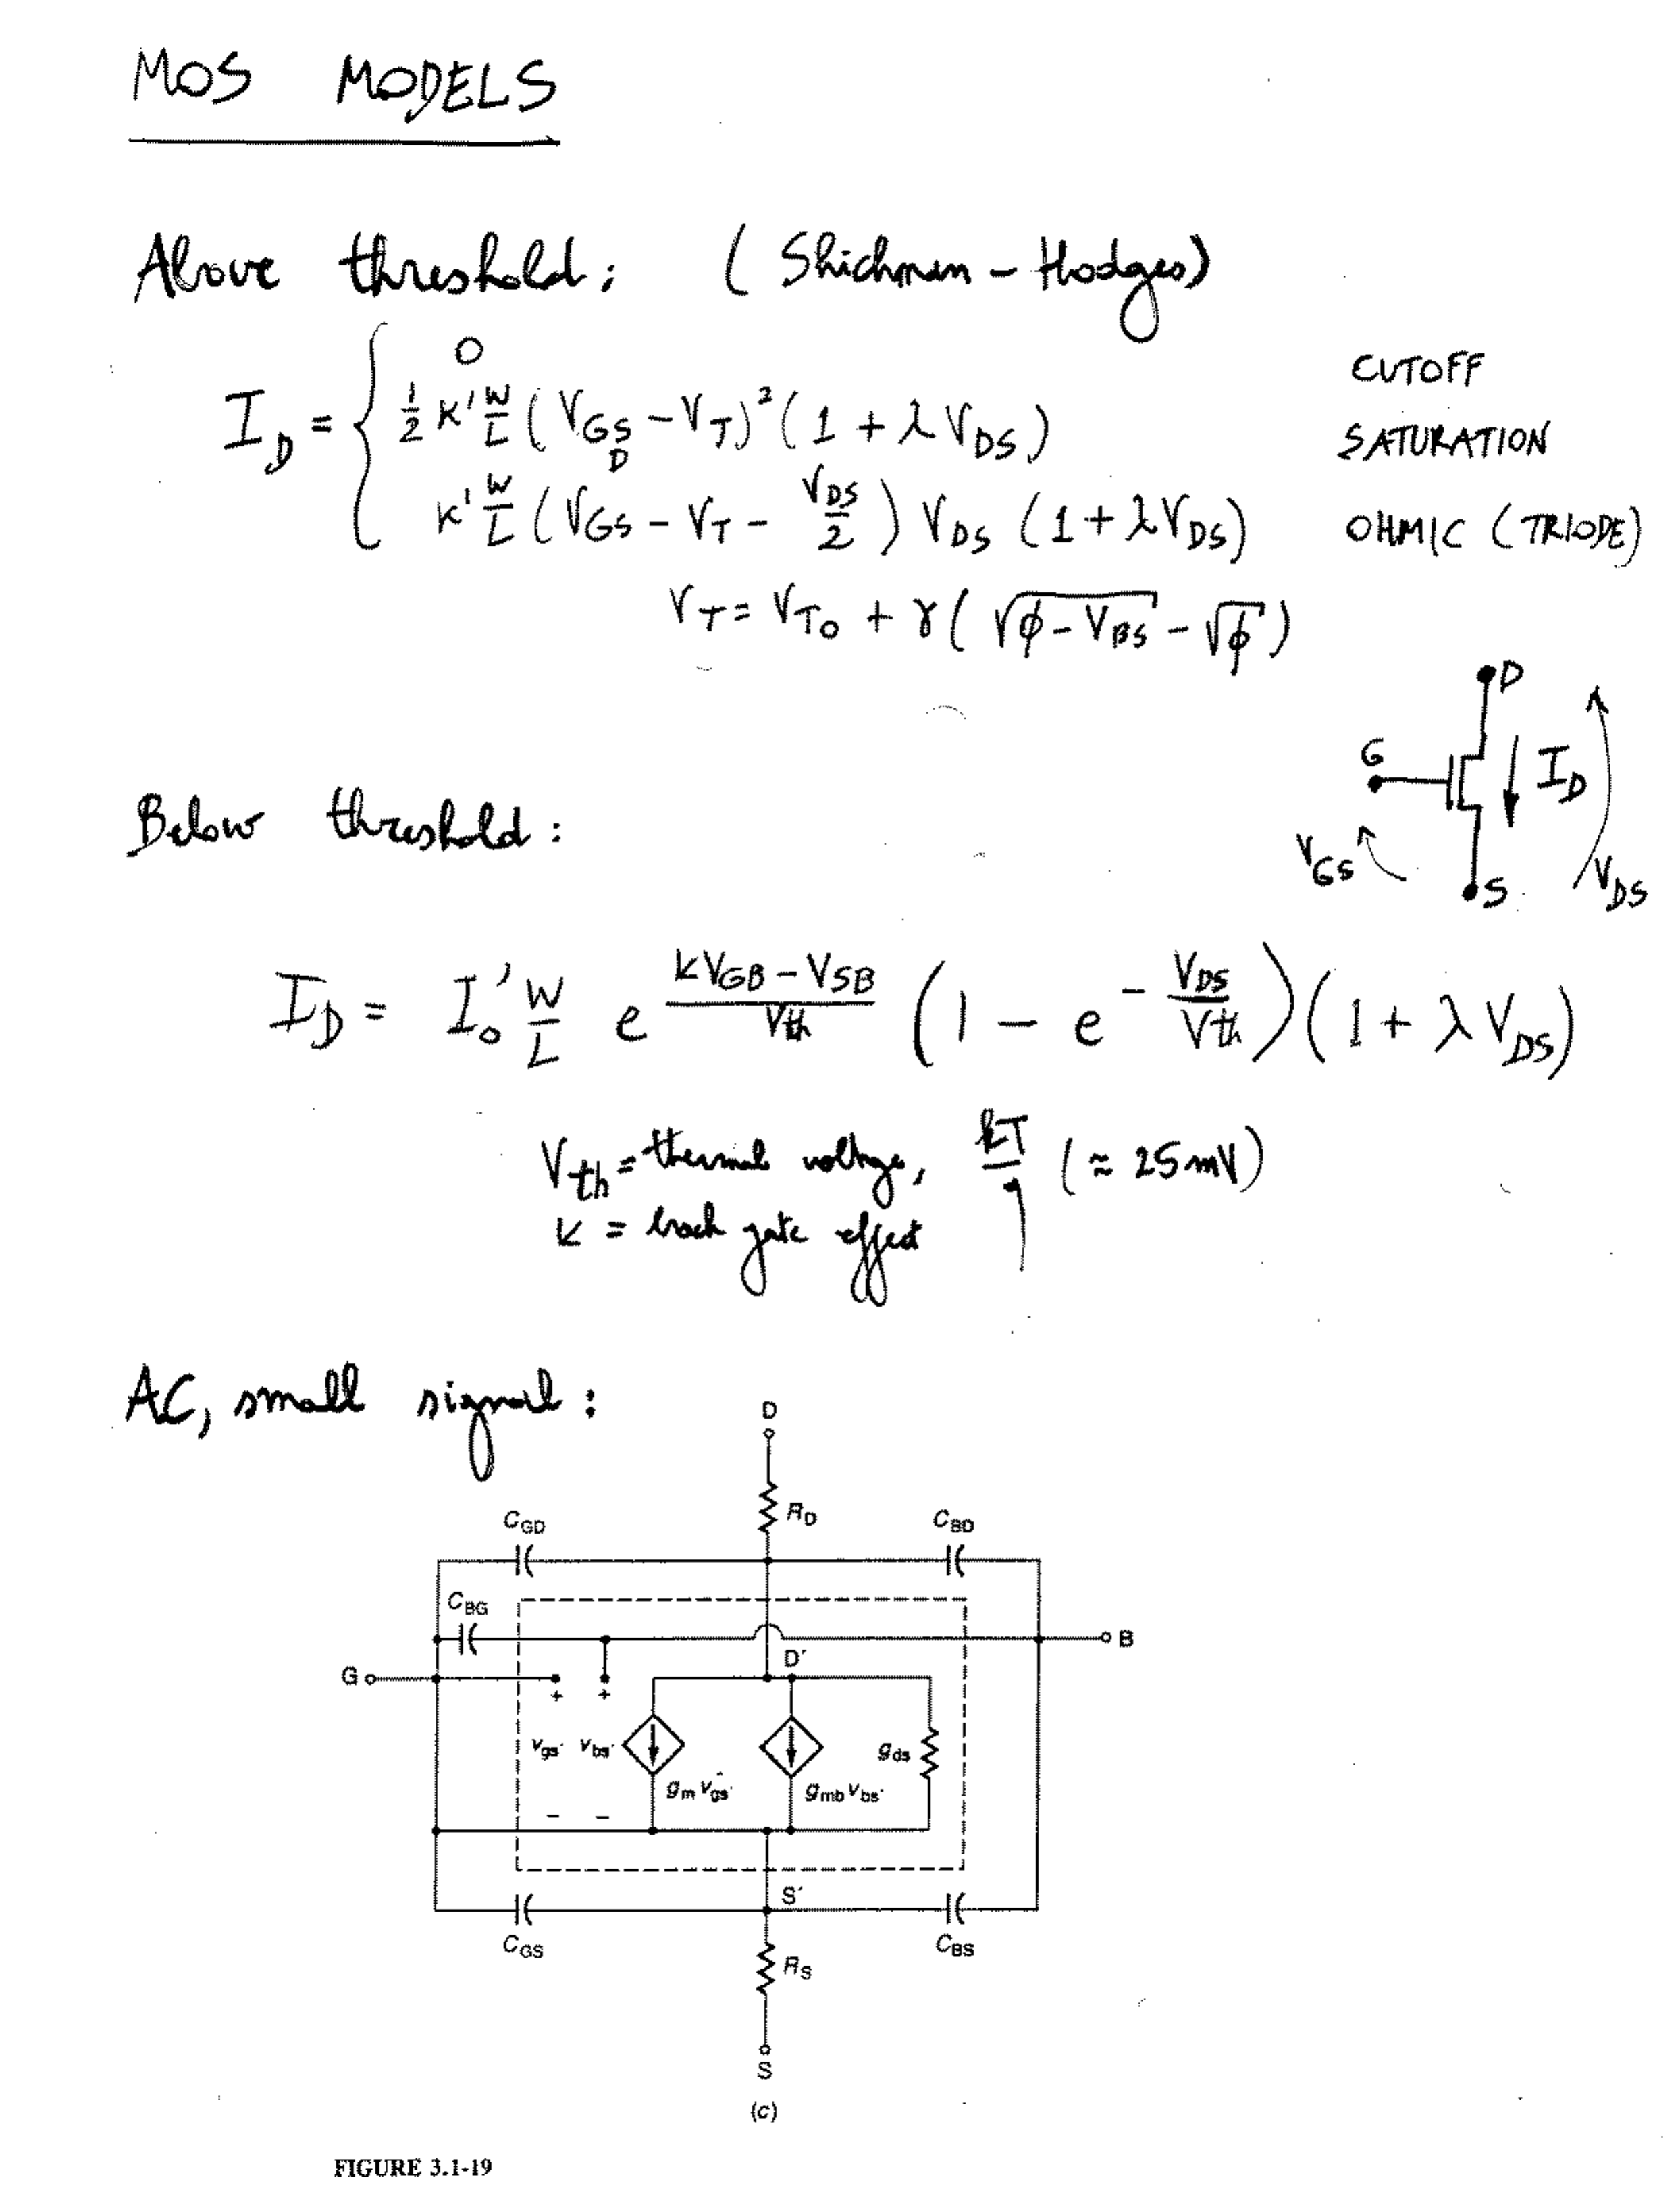 MOS MODELS
Above threshold: (Shichman-Hodges)
0 CUTOFF
I_D = { ½ K' W/L (V_GS - V_T)² (1 + λ V_DS) SATURATION
D
K' W/L (V_GS - V_T - V_DS/2) V_DS (1 + λ V_DS) OHMIC (TRIODE)
V_T = V_T0 + γ (√(φ - V_BS) - √φ)
D
G
I_D
V_GS
S
V_DS
Below threshold:
I_D = I_0' W/L e^((κV_GB - V_SB)/Vth) (1 - e^(-V_DS/Vth)) (1 + λ V_DS)
V_th = thermal voltage, kT/q (≈ 25mV)
κ = back gate effect
AC, small signal:
D
R_D
C_GD
C_BD
C_BG
B
D'
G
+ +
v_gs' v_bs'
g_ds
g_m v_gs'
g_mb v_bs'
- -
S'
C_GS
C_BS
R_S
S
(c)
FIGURE 3.1-19